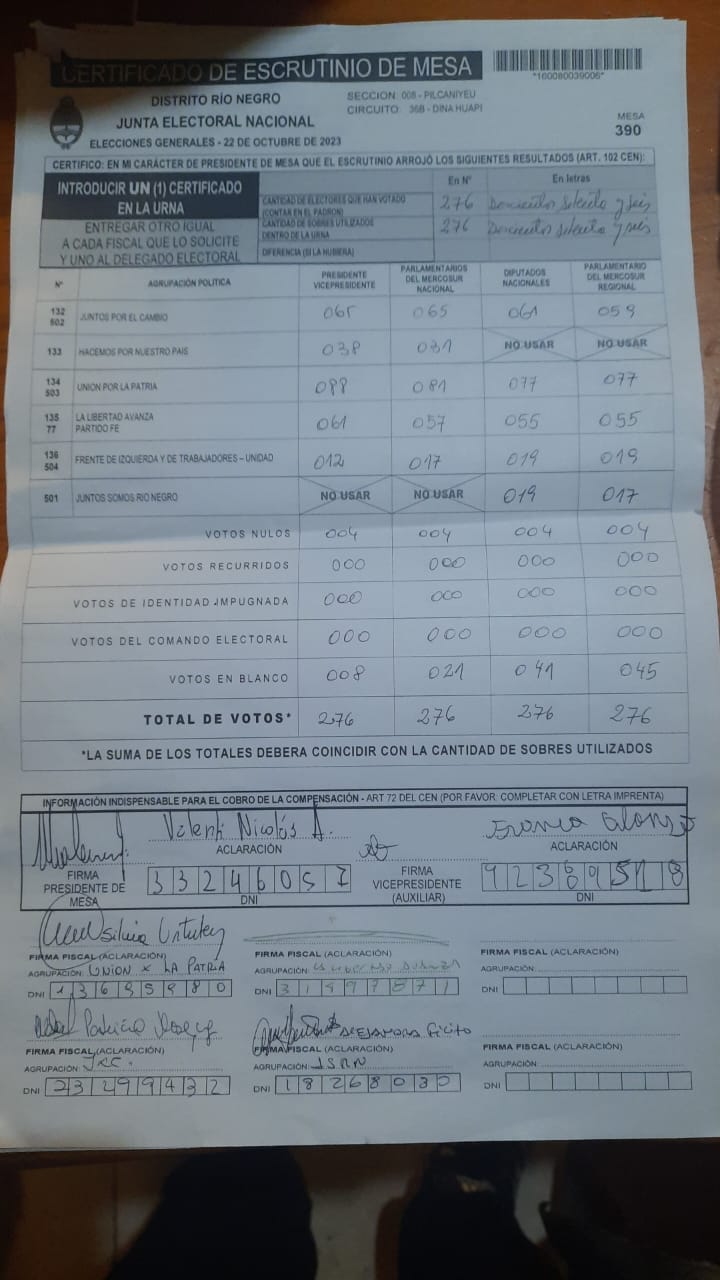 CERTIFICADO DE ESCRUTINIO DE MESA
*160080039006*
DISTRITO RÍO NEGRO
SECCION: 008 - PILCANIYEU
CIRCUITO: 36B - DINA HUAPI
JUNTA ELECTORAL NACIONAL
MESA
390
ELECCIONES GENERALES - 22 DE OCTUBRE DE 2023
CERTIFICO: EN MI CARÁCTER DE PRESIDENTE DE MESA QUE EL ESCRUTINIO ARROJÓ LOS SIGUIENTES RESULTADOS (ART. 102 CEN):
INTRODUCIR UN (1) CERTIFICADO
EN LA URNA
ENTREGAR OTRO IGUAL
A CADA FISCAL QUE LO SOLICITE
Y UNO AL DELEGADO ELECTORAL
En Nº En letras
CANTIDAD DE ELECTORES QUE HAN VOTADO
(CONTAR EN EL PADRON) 276 Doscientos setenta y seis
CANTIDAD DE SOBRES UTILIZADOS
DENTRO DE LA URNA 276 Doscientos setenta y seis
DIFERENCIA (SI LA HUBIERA)
Nº AGRUPACIÓN POLÍTICA PRESIDENTE VICEPRESIDENTE PARLAMENTARIOS DEL MERCOSUR NACIONAL DIPUTADOS NACIONALES PARLAMENTARIO DEL MERCOSUR REGIONAL
132 502 JUNTOS POR EL CAMBIO 065 065 061 059
133 HACEMOS POR NUESTRO PAIS 038 031 NO USAR NO USAR
134 503 UNION POR LA PATRIA 088 081 077 077
135 77 LA LIBERTAD AVANZA PARTIDO FE 061 057 055 055
136 504 FRENTE DE IZQUIERDA Y DE TRABAJADORES – UNIDAD 012 017 019 019
501 JUNTOS SOMOS RIO NEGRO NO USAR NO USAR 019 017
VOTOS NULOS 004 004 004 004
VOTOS RECURRIDOS 000 000 000 000
VOTOS DE IDENTIDAD IMPUGNADA 000 000 000 000
VOTOS DEL COMANDO ELECTORAL 000 000 000 000
VOTOS EN BLANCO 008 021 041 045
TOTAL DE VOTOS* 276 276 276 276
*LA SUMA DE LOS TOTALES DEBERA COINCIDIR CON LA CANTIDAD DE SOBRES UTILIZADOS
INFORMACIÓN INDISPENSABLE PARA EL COBRO DE LA COMPENSACIÓN - ART 72 DEL CEN (POR FAVOR: COMPLETAR CON LETRA IMPRENTA)
Valenti Nicolás A. Franco Alonso
ACLARACIÓN ACLARACIÓN
FIRMA PRESIDENTE DE MESA
DNI
FIRMA VICEPRESIDENTE (AUXILIAR)
DNI
Silvia
FIRMA FISCAL (ACLARACIÓN) FIRMA FISCAL (ACLARACIÓN) FIRMA FISCAL (ACLARACIÓN)
AGRUPACIÓN: UNION X LA PATRIA AGRUPACIÓN: AGRUPACIÓN:
DNI 13695980 DNI 31897871 DNI
Patricia ALEJANDRA
FIRMA FISCAL (ACLARACIÓN) FIRMA FISCAL (ACLARACIÓN) FIRMA FISCAL (ACLARACIÓN)
AGRUPACIÓN: JXC. AGRUPACIÓN: JSRN AGRUPACIÓN:
DNI 23299432 DNI 18268030 DNI